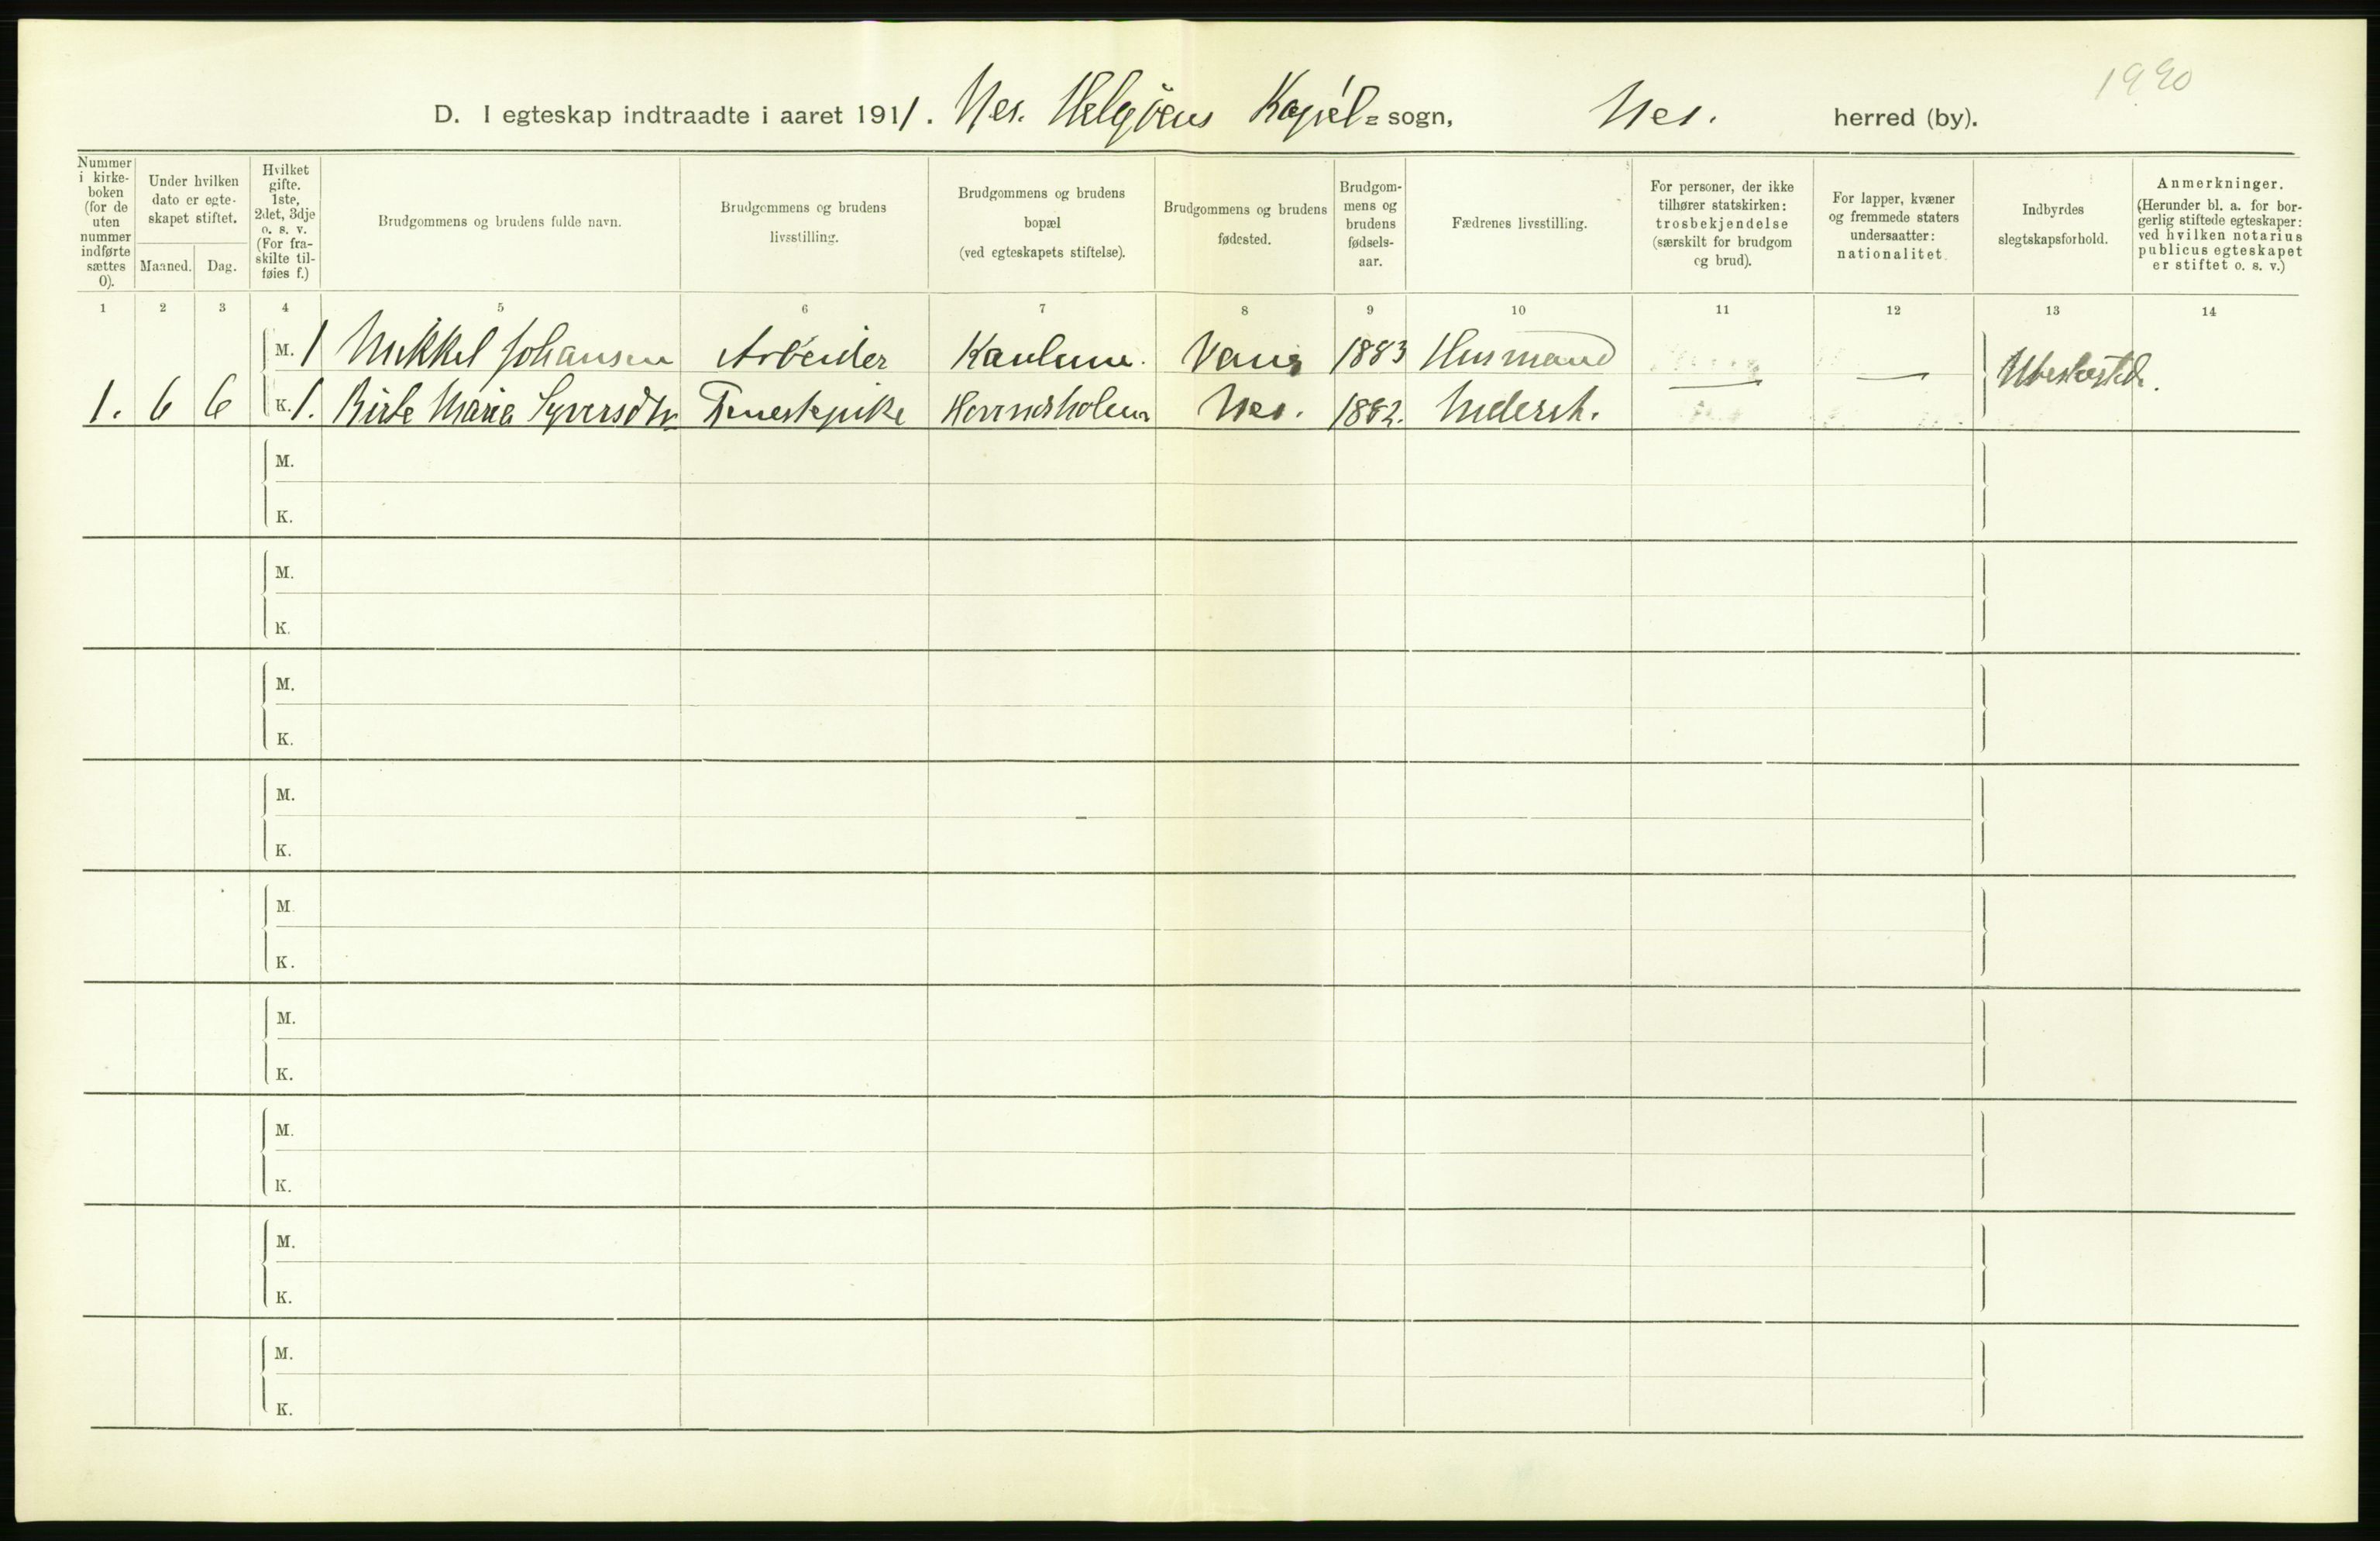 1990
D. I egteskap indtraadte i aaret 1911. Nes. Helgøens Kapel = sogn, Nes. herred (by).
Nummer i kirkeboken (for de uten nummer indførte sættes 0).
Under hvilken dato er egteskapet stiftet.
Maaned. Dag.
Hvilket gifte. 1ste, 2det, 3dje o. s. v. (For fraskilte tilføies f.)
Brudgommens og brudens fulde navn.
Brudgommens og brudens livsstilling.
Brudgommens og brudens bopæl (ved egteskapets stiftelse).
Brudgommens og brudens fødested.
Brudgommens og brudens fødselsaar.
Fædrenes livsstilling.
For personer, der ikke tilhører statskirken: trosbekjendelse (særskilt for brudgom og brud).
For lapper, kvæner og fremmede staters undersaatter: nationalitet.
Indbyrdes slegtskapsforhold.
Anmerkninger. (Herunder bl. a. for borgerlig stiftede egteskaper: ved hvilken notarius publicus egteskapet er stiftet o. s. v.)
1 2 3 4 5 6 7 8 9 10 11 12 13 14
M. 1 Mikkel Johansen Arbeider Vang 1883 Husmand — — Ubeslægtede.
1. 6 6 K. 1. Birte Maria Syversdtr Tjenestepike Nes. 1882. Inderst.
M.
K.
M.
K.
M.
K.
M.
K.
M
K.
M.
K.
M.
K.
M.
K.
M.
K.